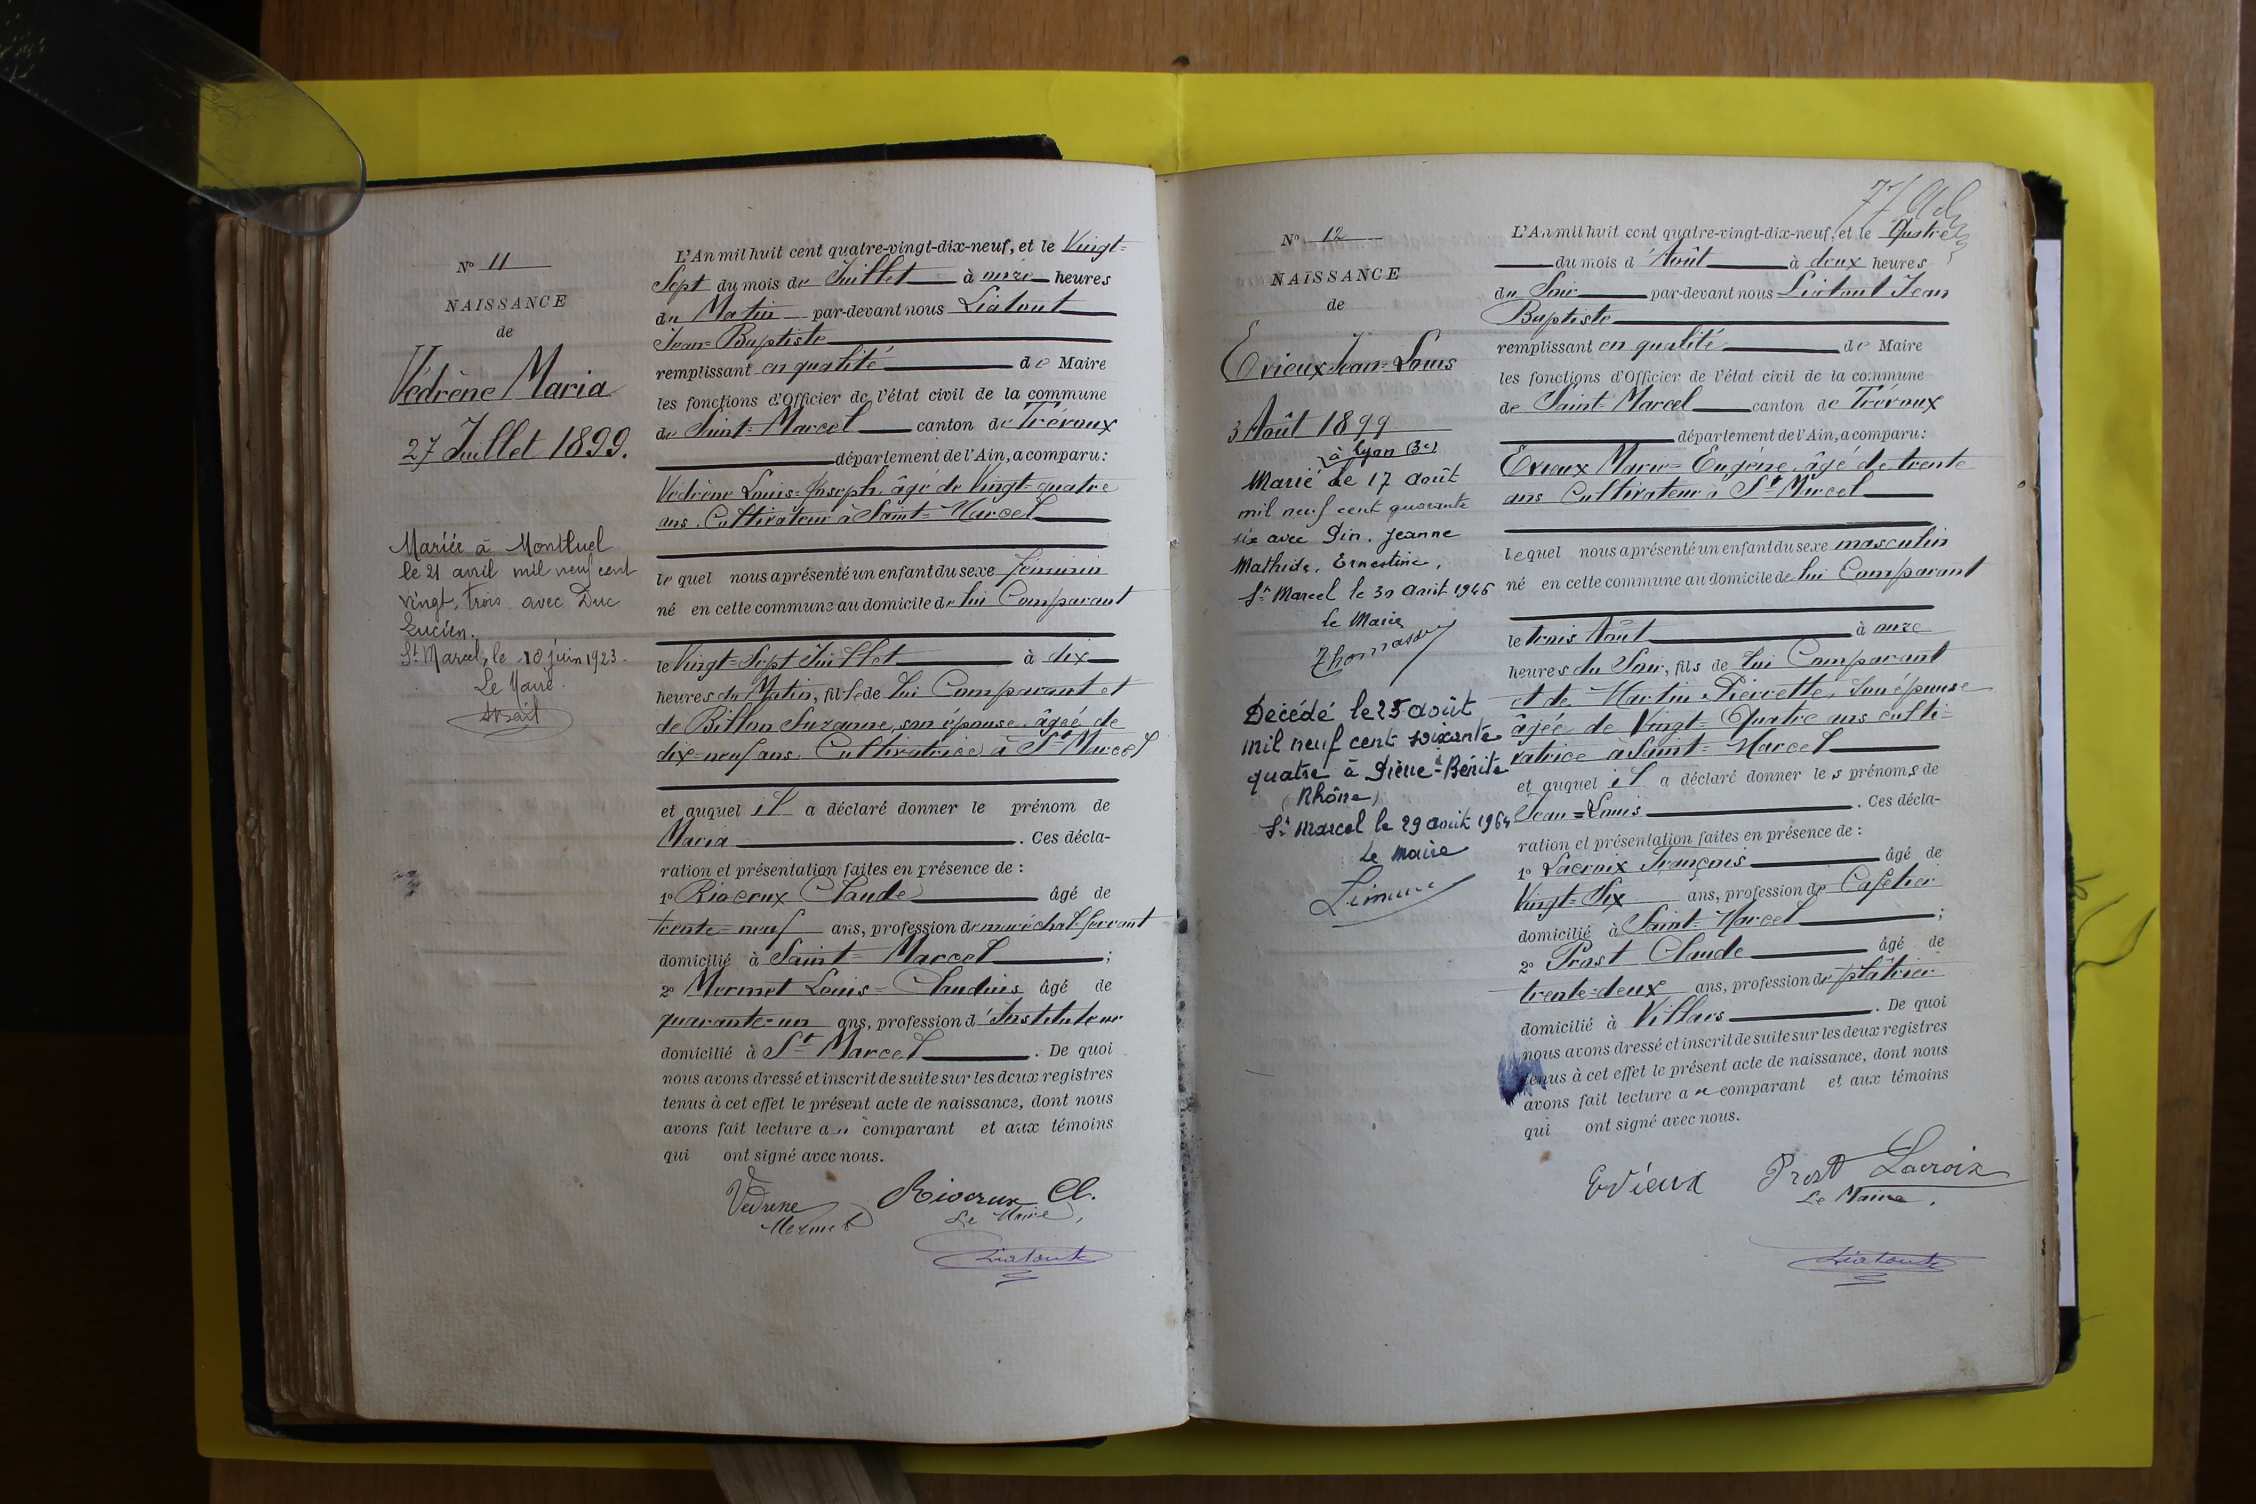 N° 11
NAISSANCE
de
Védrène Maria
27 Juillet 1899.
Mariée à Montluel
le 21 avril mil neuf cent
vingt-trois avec Duc
Lucien.
St Marcel, le 10 juin 1923.
Le Maire.
L'An mil huit cent quatre-vingt-dix-neuf, et le Vingt-
Sept du mois de Juillet à onze heures
du Matin par-devant nous Liatout
Jean-Baptiste
remplissant en qualité de Maire
les fonctions d'Officier de l'état civil de la commune
de Saint-Marcel canton de Trévoux
département de l'Ain, a comparu:
Védrène Louis-Joseph, âgé de Vingt-quatre
ans, Cultivateur à Saint-Marcel
le quel nous a présenté un enfant du sexe féminin
né en cette commune au domicile de lui Comparant
le Vingt-Sept Juillet à dix
heures du Matin, fille de lui Comparant et
de Billon Suzanne, son épouse, âgée de
dix-neuf ans, Cultivatrice à St Marcel
et auquel il a déclaré donner le prénom de
Maria. Ces décla-
ration et présentation faites en présence de :
1° Rioux Claude âgé de
trente-neuf ans, profession de maréchal ferrant
domicilié à Saint-Marcel ;
2° Mermet Louis-Claudius âgé de
quarante-un ans, profession d'Instituteur
domicilié à St Marcel. De quoi
nous avons dressé et inscrit de suite sur les deux registres
tenus à cet effet le présent acte de naissance, dont nous
avons fait lecture au comparant et aux témoins
qui ont signé avec nous.
Védrène
Mermet
Cl.
Le Maire,
Liatout
N° 12
NAISSANCE
de
Evieux Jean-Louis
3 Août 1899
à Lyon (3e)
Marié le 17 août
mil neuf cent quarante
six avec Pin. Jeanne
Mathilde, Ernestine.
St Marcel le 30 août 1946
le Maire
Thomasson
Décédé le 25 août
mil neuf cent soixante
quatre à Pierre-Bénite
(Rhône)
St Marcel le 29 août 1964
le maire
L'An mil huit cent quatre-vingt-dix-neuf, et le Quatre
du mois d'Août à deux heures
du Soir par-devant nous Liatout Jean
Baptiste
remplissant en qualité de Maire
les fonctions d'Officier de l'état civil de la commune
de Saint-Marcel canton de Trévoux
département de l'Ain, a comparu:
Evieux Marie-Eugène, âgé de trente
ans Cultivateur à St Marcel
lequel nous a présenté un enfant du sexe masculin
né en cette commune au domicile de lui Comparant
le trois Août à onze
heures du Soir, fils de lui Comparant
et de Martin Pierrette, son épouse
âgée de Vingt-Quatre ans culti-
vatrice à Saint-Marcel
et auquel il a déclaré donner les prénoms de
Jean-Louis. Ces décla-
ration et présentation faites en présence de :
1° Lacroix François âgé de
Vingt-Six ans, profession de Cafetier
domicilié à Saint-Marcel ;
2° Prost Claude âgé de
trente-deux ans, profession de plâtrier
domicilié à Villars. De quoi
nous avons dressé et inscrit de suite sur les deux registres
tenus à cet effet le présent acte de naissance, dont nous
avons fait lecture au comparant et aux témoins
qui ont signé avec nous.
Evieux Prost Lacroix
Le Maire,
Liatout